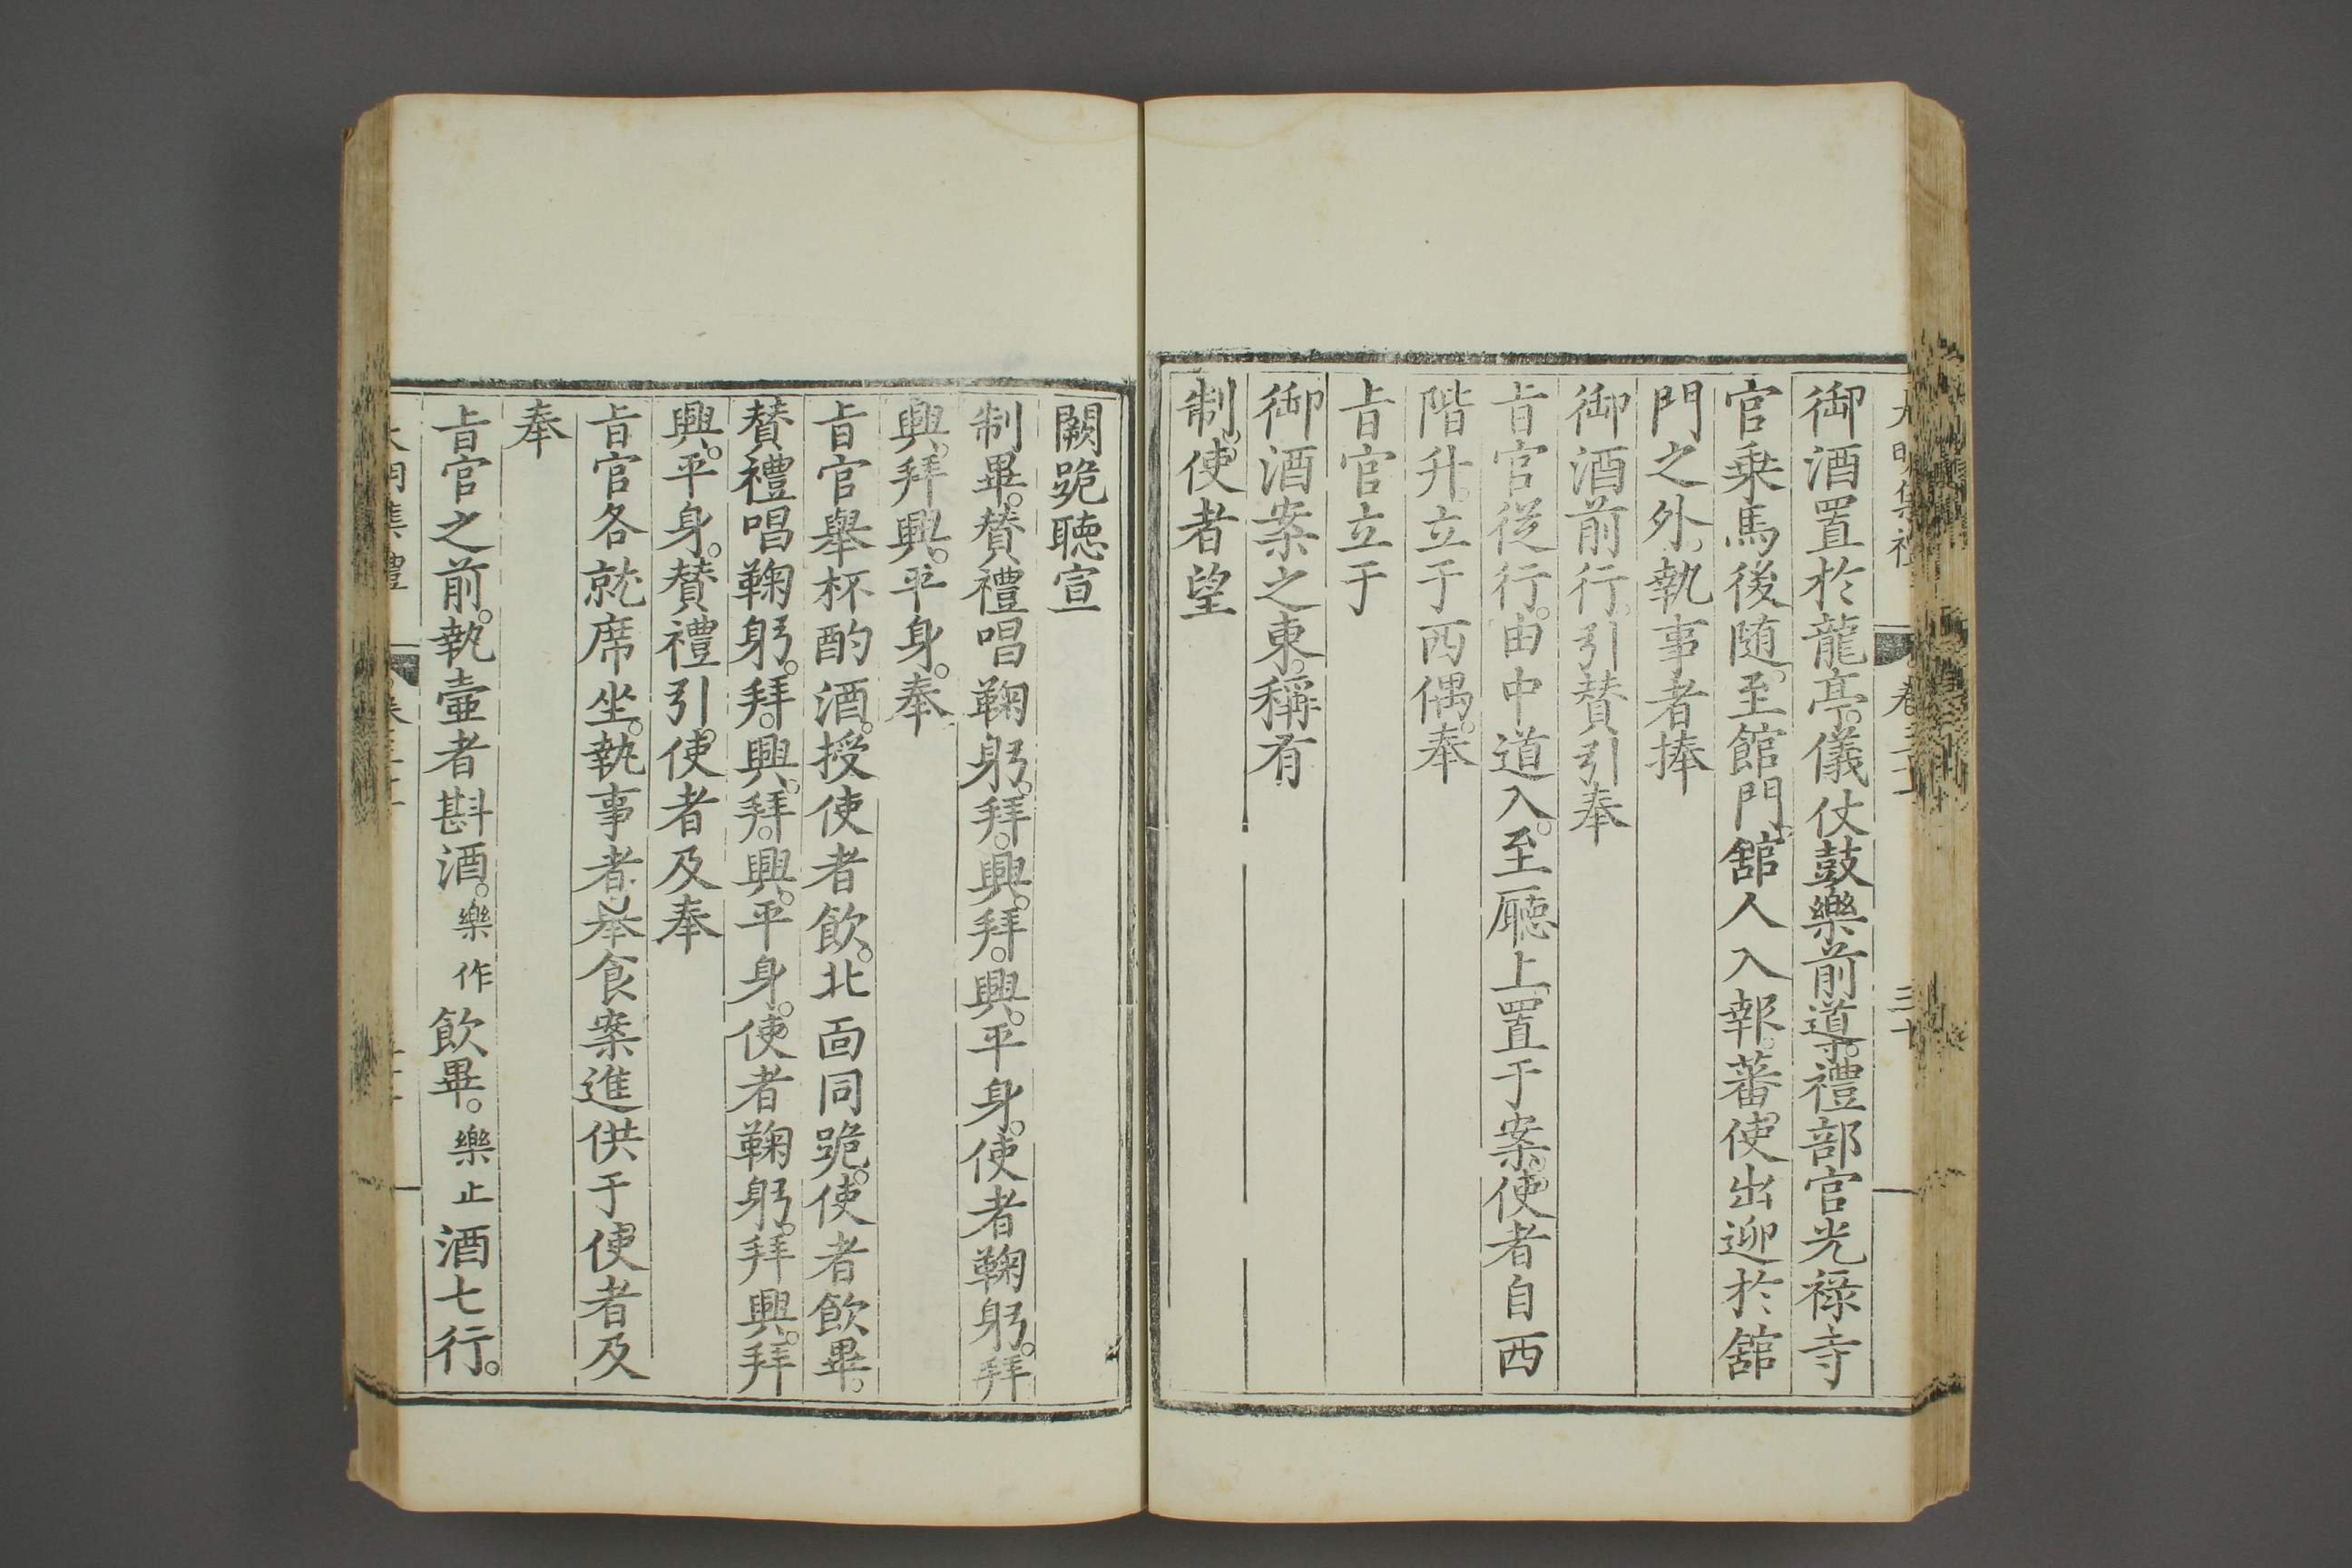 御酒置於龍亭。儀仗鼓樂前導。禮部官光祿寺
官乗馬後随。至館門。舘人入報。蕃使出迎於舘
門之外。執事者捧
御酒前行。引賛引奉
㫖官從行。由中道入。至廳上置于案。使者自西
階升。立于西偶。奉
㫖官立于
御酒案之東。稱有
制。使者望
闕跪聴宣
制畢。賛禮唱鞠躬。拜。興。拜。興。平身。使者鞠躬。拜
興。拜興。平身。奉
㫖官舉杯酌酒。授使者飲。北靣同跪。使者飲畢。
賛禮唱鞠躬。拜。興。拜。興。平身。使者鞠躬。拜興。拜
興。平身。賛禮引使者及奉
㫖官各就席坐。執事者舉食案進供于使者及
奉
㫖官之前。執壷者斟酒。樂作飲畢。樂止酒七行。